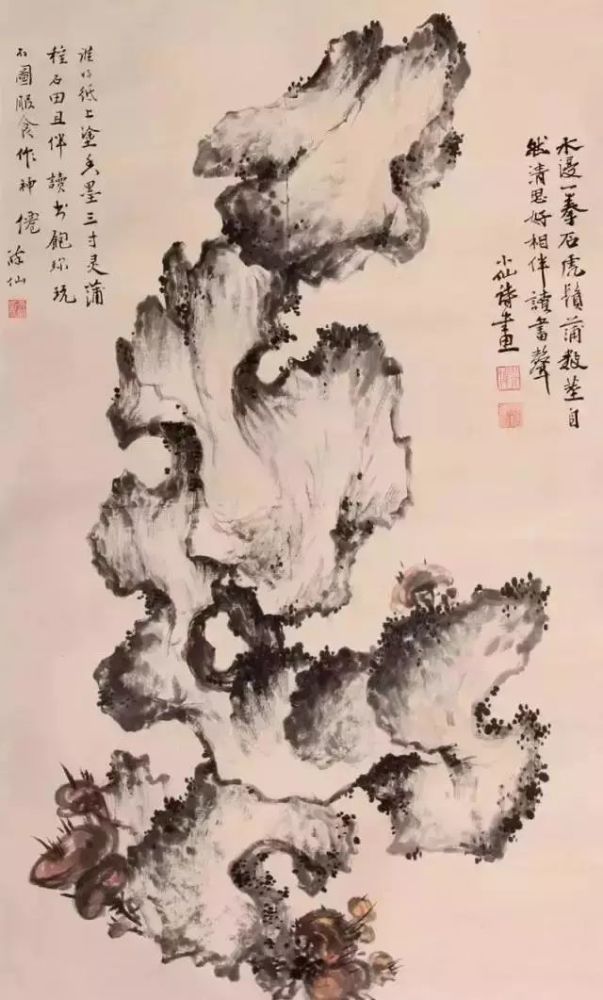 水邊一拳石虎鬚蒲數莖自
然清思好相伴讀書聲
小仙詩畫
紙上塗墨三寸灵蒲
種石田且伴讀书飽珍玩
不圖服食作神僊 仙